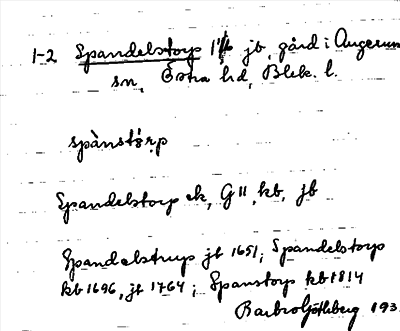 1-2 Spandelstorp 1 jb, gård i Augerum
sn, Östra hd, Blek. l.
spànstǿrp
Spandelstorp ek, GII, kb, jb
Spandelstrup jb 1651; Spandelstorp
kb 1696, jb 1764; Spanstorp kb 1814
Barbro Götheberg 193